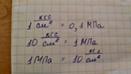 1 кгс/см² = 0,1 МПа
10 кгс/см² = 1 МПа
1 МПа = 10 кгс/см²